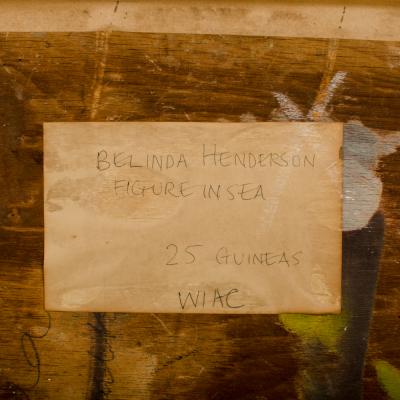 BELINDA HENDERSON
FIGURE IN SEA
25 GUINEAS
WIAC